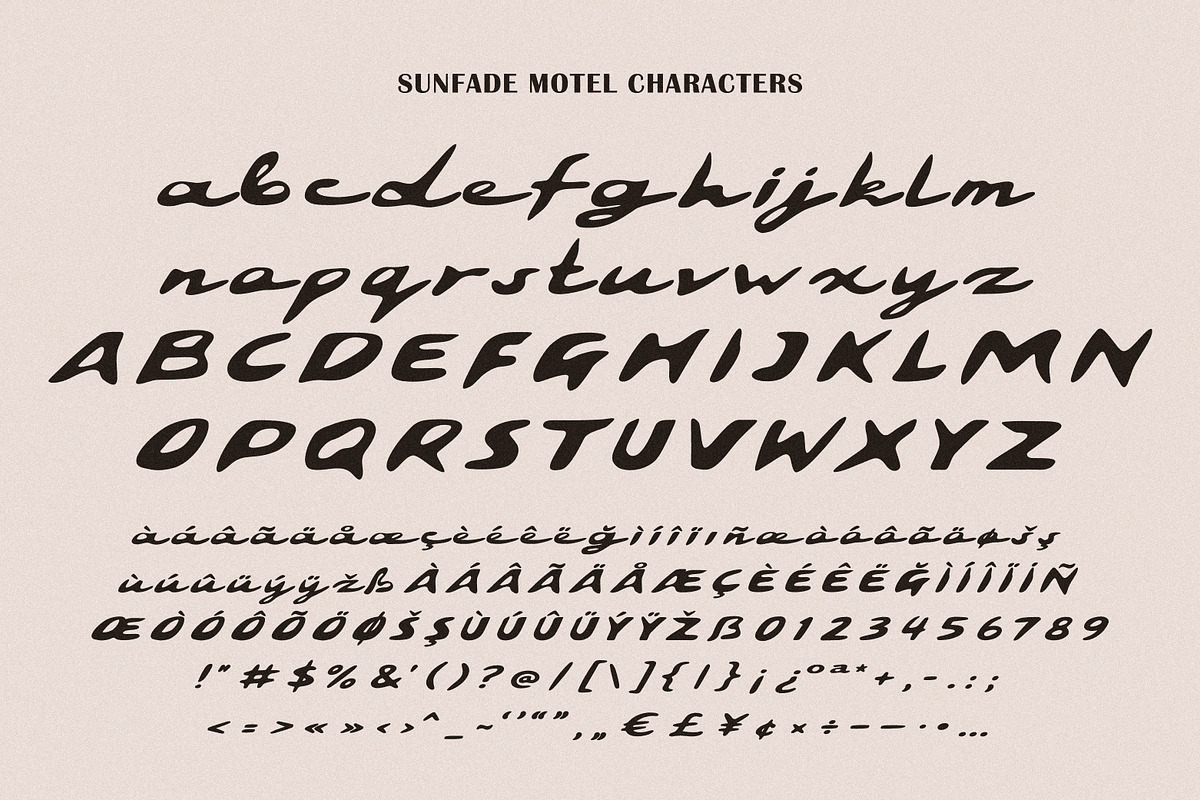 SUNFADE MOTEL CHARACTERS
abcdefghijklm
nopqrstuvwxyz
ABCDEFGHIJKLMN
OPQRSTUVWXYZ
àáâãäåæçèéêëğìíîïıñœòóôõöøšş
ùúûüýÿžß ÀÁÂÃÄÅÆÇÈÉÊËĞÌÍÎÏİÑ
ŒÒÓÔÕÖØŠŞÙÚÛÜÝŸŽẞ0123456789
!"#$%&'()?@/[\]{|}¡¿ºª*+,-.:;
<=>«»‹›^_~‘’“”‚„€£¥¢×÷–—·•…